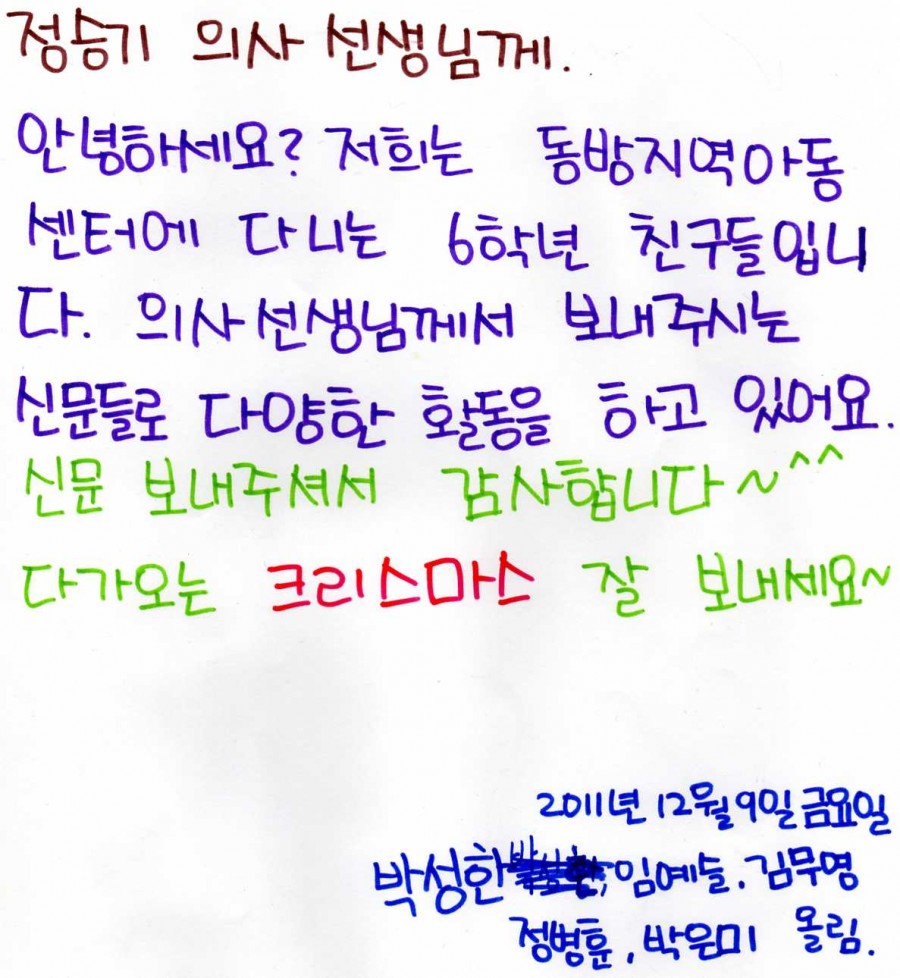 정승기 의사 선생님께.
안녕하세요? 저희는 동방지역아동
센터에 다니는 6학년 친구들입니
다. 의사선생님께서 보내주시는
신문들로 다양한 활동을 하고 있어요.
신문 보내주셔서 감사합니다~^^
다가오는 크리스마스 잘 보내세요~
2011년 12월 9일 금요일
박성한, 임예슬, 김무영
정병훈, 박은미 올림.